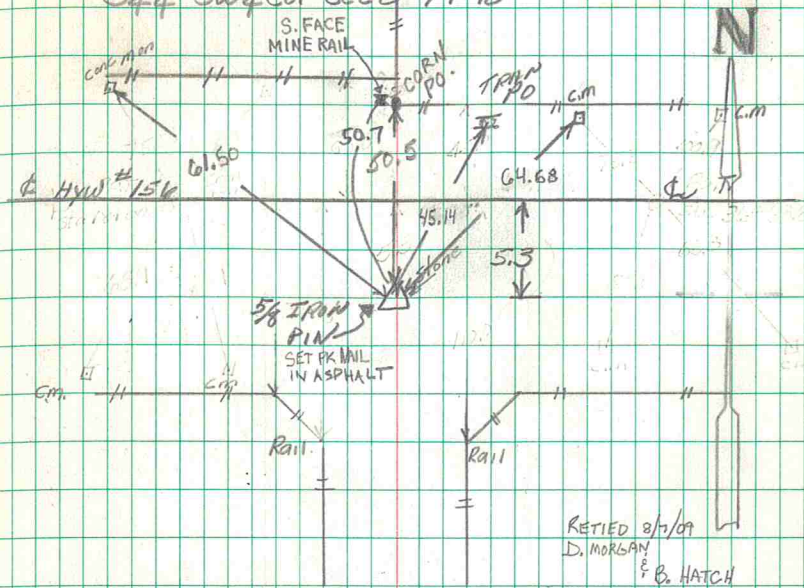 S. FACE
MINE RAIL
N
conc mon
CORN
PO.
TRAN
PO
C.M
C.M
50.7
50.5
61.50
64.68
℄ Hyw # 156
℄
45.14
Stone
5.3
5/8 IRON
PIN
SET PK NAIL
IN ASPHALT
C.M.
C.M
Rail
Rail
RETIED 8/7/09
D. MORGAN
& B. HATCH